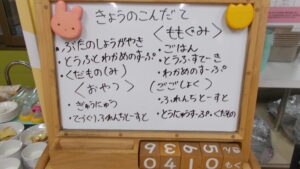 きょうのこんだて
・ぶたのしょうがやき
・とうふとわかめのすーぷ
・くだもの(み)
〈おやつ〉
・ぎゅうにゅう
・てづくりふれんちとーすと
〈ももぐみ〉
・ごはん
・とうふすてーき
・わかめのすーぷ
〈ごごしょく〉
・ふれんちとーすと
・とうにゅうすーぷ、くだもの